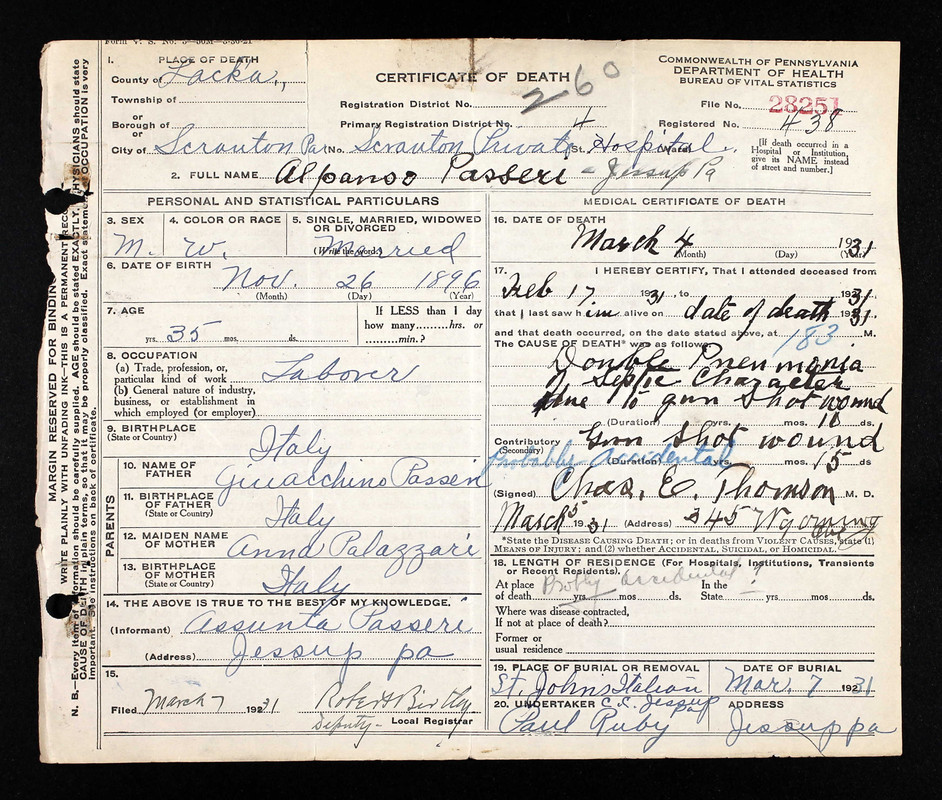 Form V. S. No. 5—50M—3-30-21
1. PLACE OF DEATH
County of Lacka.,
Township of
or
Borough of
or
City of Scranton Pa No. Scranton Private St. Hospital Ward
CERTIFICATE OF DEATH
260
Registration District No.
Primary Registration District No. 4
COMMONWEALTH OF PENNSYLVANIA
DEPARTMENT OF HEALTH
BUREAU OF VITAL STATISTICS
File No. 28251
Registered No. 438
[If death occurred in a
Hospital or Institution,
give its NAME instead
of street and number.]
2. FULL NAME Alpanso Passeri - Jessup Pa
PERSONAL AND STATISTICAL PARTICULARS
3. SEX
M.
4. COLOR OR RACE
W.
5. SINGLE, MARRIED, WIDOWED
OR DIVORCED
(Write the word) Married
6. DATE OF BIRTH
Nov. 26 1896
(Month) (Day) (Year)
7. AGE
35 yrs. mos. ds.
If LESS than 1 day
how many hrs. or
min.?
8. OCCUPATION
(a) Trade, profession, or,
particular kind of work Laborer
(b) General nature of industry,
business, or establishment in
which employed (or employer)
9. BIRTHPLACE
(State or Country)
Italy
PARENTS
10. NAME OF
FATHER
Giuacchino Passeri
11. BIRTHPLACE
OF FATHER
(State or Country)
Italy
12. MAIDEN NAME
OF MOTHER
Anna Palazzari
13. BIRTHPLACE
OF MOTHER
(State or Country)
Italy
14. THE ABOVE IS TRUE TO THE BEST OF MY KNOWLEDGE.
(Informant) Assunta Passeri
(Address) Jessup pa
15.
Filed March 7 192 31
Deputy- Local Registrar
MEDICAL CERTIFICATE OF DEATH
16. DATE OF DEATH
March 4 1931
(Month) (Day) (Year)
17. I HEREBY CERTIFY, That I attended deceased from
Feb 17 1931, to 1931,
that I last saw him alive on date of death 1931
and that death occurred, on the date stated above, at M.
183
The CAUSE OF DEATH* was as follows:
Double Pneumonia
of Septic Character
due to gun shot wound
(Duration) yrs. mos. 10 ds.
Contributory Gun shot wound
(Secondary)
Probably Accidental
(Duration) yrs. mos. 15 ds
(Signed) Chas. E. Thomson M. D.
March 5 19 31 (Address) 345 Wyoming Ave
*State the DISEASE CAUSING DEATH; or in deaths from VIOLENT CAUSES, state (1)
MEANS OF INJURY; and (2) whether ACCIDENTAL, SUICIDAL, or HOMICIDAL.
18. LENGTH OF RESIDENCE (For Hospitals, Institutions, Transients
or Recent Residents).
Probly accidental ?
At place In the
of death yrs. mos. ds. State yrs. mos. ds.
Where was disease contracted,
If not at place of death?
Former or
usual residence
19. PLACE OF BURIAL OR REMOVAL
St. Johns Italian
C.C. Jessup Pa
DATE OF BURIAL
Mar. 7 192 31
20. UNDERTAKER
Paul Ruby
ADDRESS
Jessup pa
MARGIN RESERVED FOR BINDING
WRITE PLAINLY WITH UNFADING INK—THIS IS A PERMANENT RECO
N. B.—Every item of information should be carefully supplied. AGE should be stated EXACTLY. PHYSICIANS should state
CAUSE OF DEATH in plain terms, so that it may be properly classified. Exact statement OCCUPATION is very
important. See instructions on back of certificate.